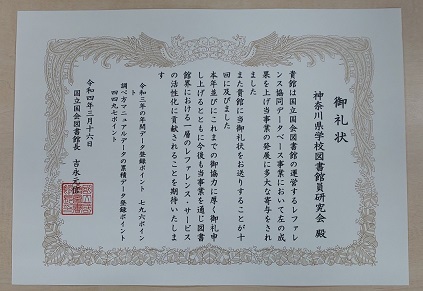 御礼状
神奈川県学校図書館員研究会 殿
貴館は国立国会図書館の運営するレファレ
ンス協同データベース事業において左の成
果を上げ当事業の発展に多大な寄与をされ
ました
また貴館に当御礼状をお送りすることが十
回に及びました
本年並びにこれまでの御協力に厚く御礼申
し上げるとともに今後も当事業を通じ図書
館界における一層のレファレンス・サービス
の活性化に貢献されることを期待いたしま
す
令和三年の年間データ登録ポイント 七九六ポイン
ト
調べ方マニュアルデータの累積データ登録ポイント
四四九七ポイント
令和四年三月十六日
国立国会図書館長 吉永元信